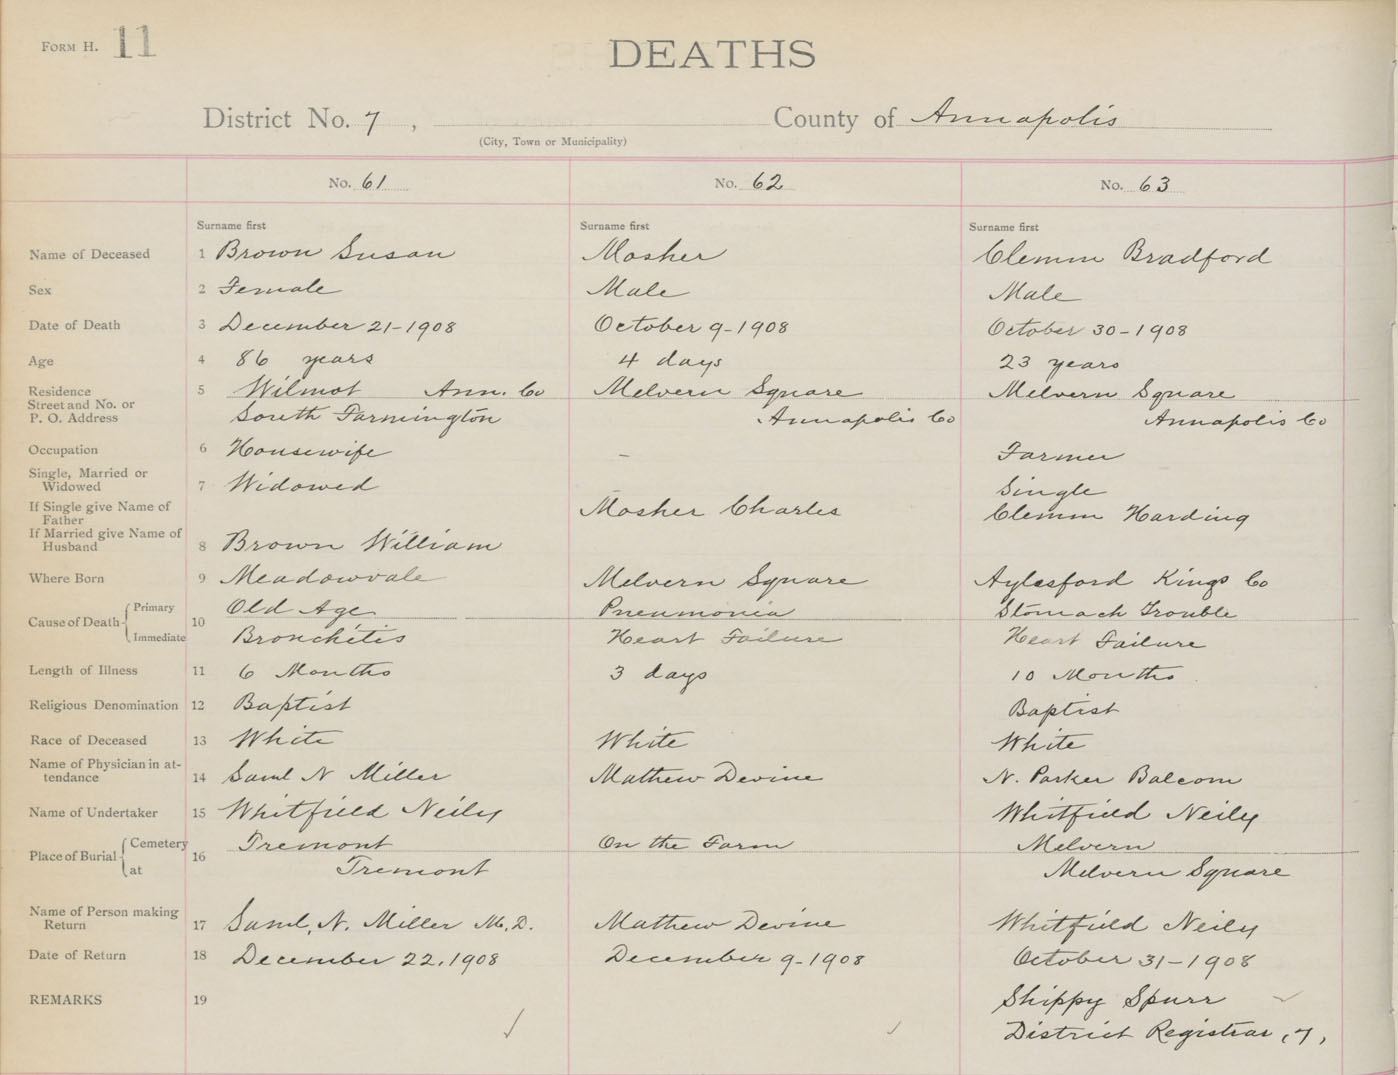 FORM H. 11
DEATHS
District No. 7 , County of Annapolis
(City, Town or Municipality)
No. 61 No. 62 No. 63
Surname first Surname first Surname first
Name of Deceased 1 Brown Susan Mosher Clemm Bradford
Sex 2 Female Male Male
Date of Death 3 December 21-1908 October 9-1908 October 30-1908
Age 4 86 years 4 days 23 years
Residence 5 Wilmot Ann. Co Melvern Square Melvern Square
Street and No. or
P. O. Address South Farmington Annapolis Co Annapolis Co
Occupation 6 Housewife – Farmer
Single, Married or
Widowed 7 Widowed – Single
If Single give Name of
Father Mosher Charles Clemm Harding
If Married give Name of
Husband 8 Brown William
Where Born 9 Meadowvale Melvern Square Aylesford Kings Co
Cause of Death Primary 10 Old Age Pneumonia Stomach Trouble
Immediate Bronchitis Heart Failure Heart Failure
Length of Illness 11 6 Months 3 days 10 Months
Religious Denomination 12 Baptist Baptist
Race of Deceased 13 White White White
Name of Physician in at-
tendance 14 Saml N Miller Mathew Devine N. Parker Balcom
Name of Undertaker 15 Whitfield Neily Whitfield Neily
Place of Burial Cemetery 16 Tremont On the Farm Melvern
at Tremont Melvern Square
Name of Person making
Return 17 Saml, N. Miller M.D. Mathew Devine Whitfield Neily
Date of Return 18 December 22, 1908 December 9-1908 October 31-1908
REMARKS 19 Shippy Spurr
District Registrar (7,